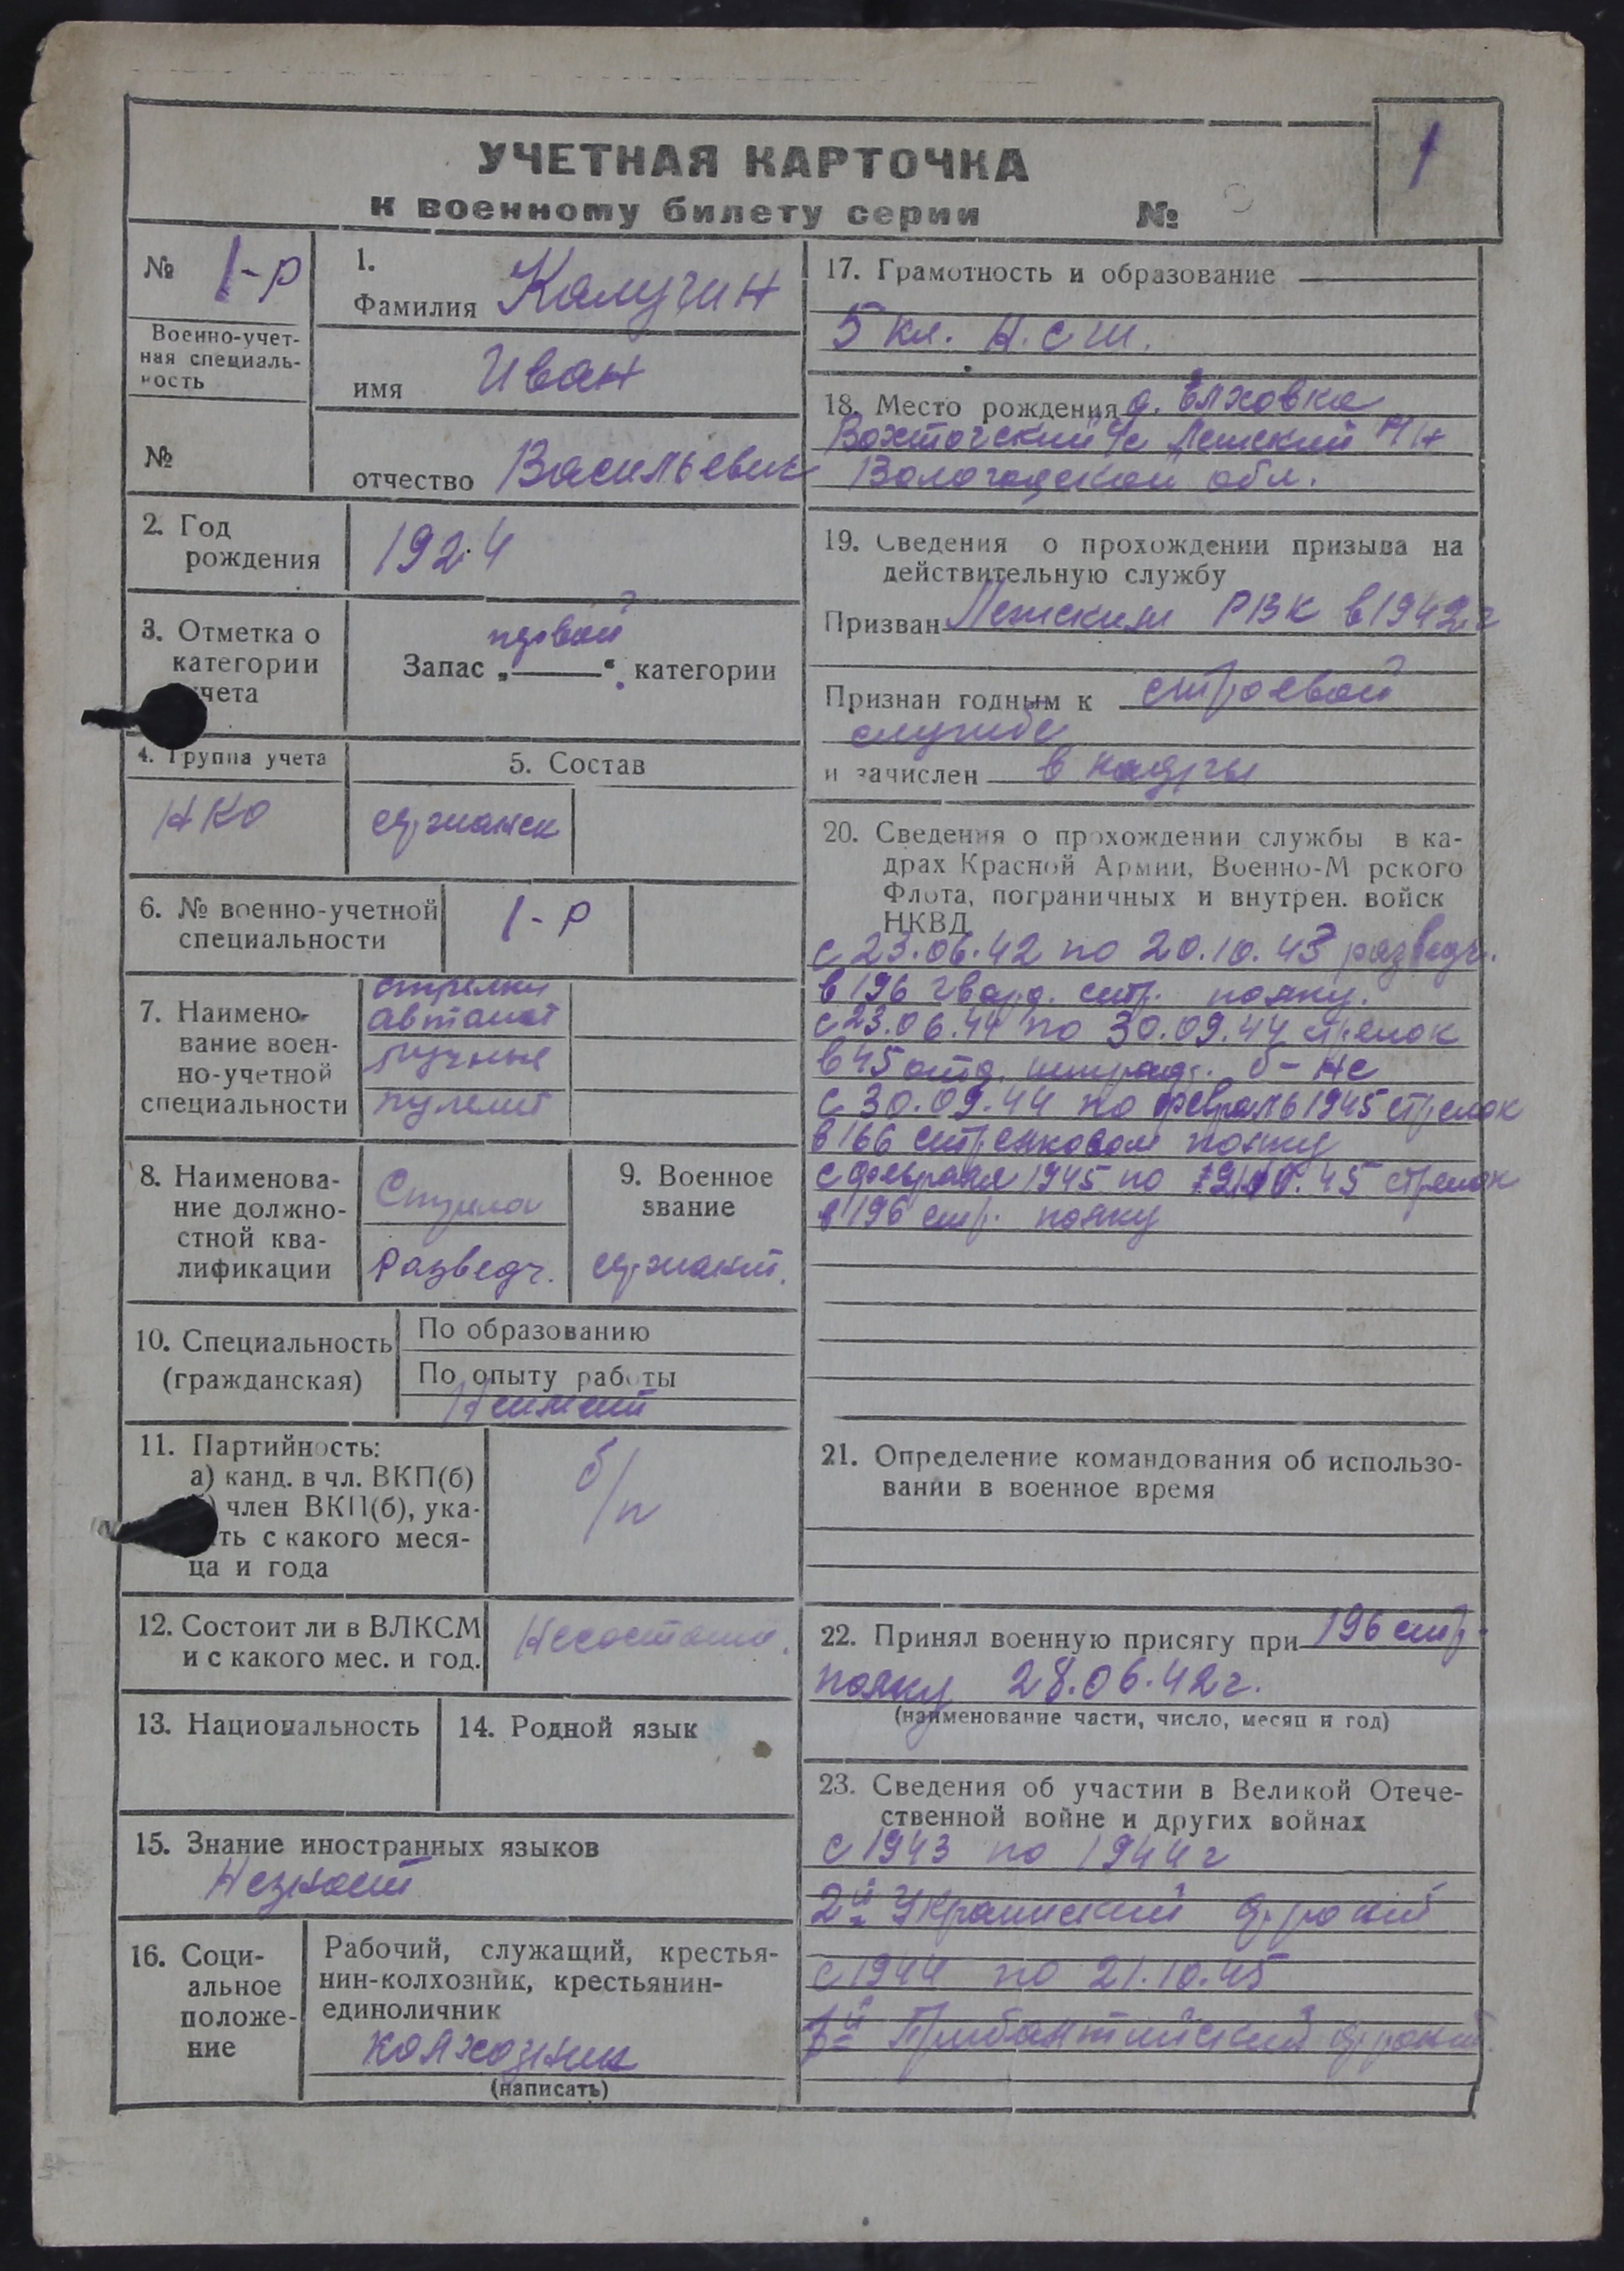 1
УЧЕТНАЯ КАРТОЧКА
к военному билету серии №
№ 1-р
Военно-учет-
ная специаль-
ность
№
1.
Фамилия Калугин
имя Иван
отчество Васильевич
2. Год
рождения
1924
3. Отметка о
категории
чета
Запас „первой“ категории
4. Группа учета
НКО
5. Состав
сержанск
6. № военно-учетной
специальности
1-р
7. Наимено-
вание воен-
но-учетной
специальности
стрелки
автомат
ручные
пулемет
8. Наименова-
ние должно-
стной ква-
лификации
Разведч.
9. Военное
звание
сержант.
10. Специальность
(гражданская)
По образованию
По опыту работы
Неимеет
11. Партийность:
а) канд. в чл. ВКП(б)
член ВКП(б), ука-
ть с какого меся-
ца и года
б/п
12. Состоит ли в ВЛКСМ
и с какого мес. и год.
13. Национальность
14. Родной язык
15. Знание иностранных языков
Незнает
16. Соци-
альное
положе-
ние
Рабочий, служащий, крестья-
нин-колхозник, крестьянин-
единоличник
колхозник
(написать)
17. Грамотность и образование
5 кл. Н.С.Ш.
18. Место рождения д. Елховка
Вохтогский с/с Лежский
Вологодской обл.
19. Сведения о прохождении призыва на
действительную службу
Призван Лежским РВК в 1942 г
Признан годным к строевой
службе
и зачислен в кадры
20. Сведения о прохождении службы в ка-
драх Красной Армии, Военно-М рского
Флота, пограничных и внутрен. войск
НКВД
с 23.06.42 по 20.10.43 разведч.
в 196 гвард. стр. полку.
с 23.06.44 по 30.09.44 стрелок
в 45 отд. б-не
с 30.09.44 по февраль 1945 стрелок
в 166 стрелковом полку
с февраля 1945 по 45 стрелок
в 196 стр. полку
21. Определение командования об использо-
вании в военное время
22. Принял военную присягу при 196 стр.
полку 28.06.42 г.
(наименование части, число, месяц и год)
23. Сведения об участии в Великой Отече-
ственной войне и других войнах
с 1943 по 1944 г
2й Украинский фронт
с 1944 по 21.10.45
1й Прибалтийский фронт